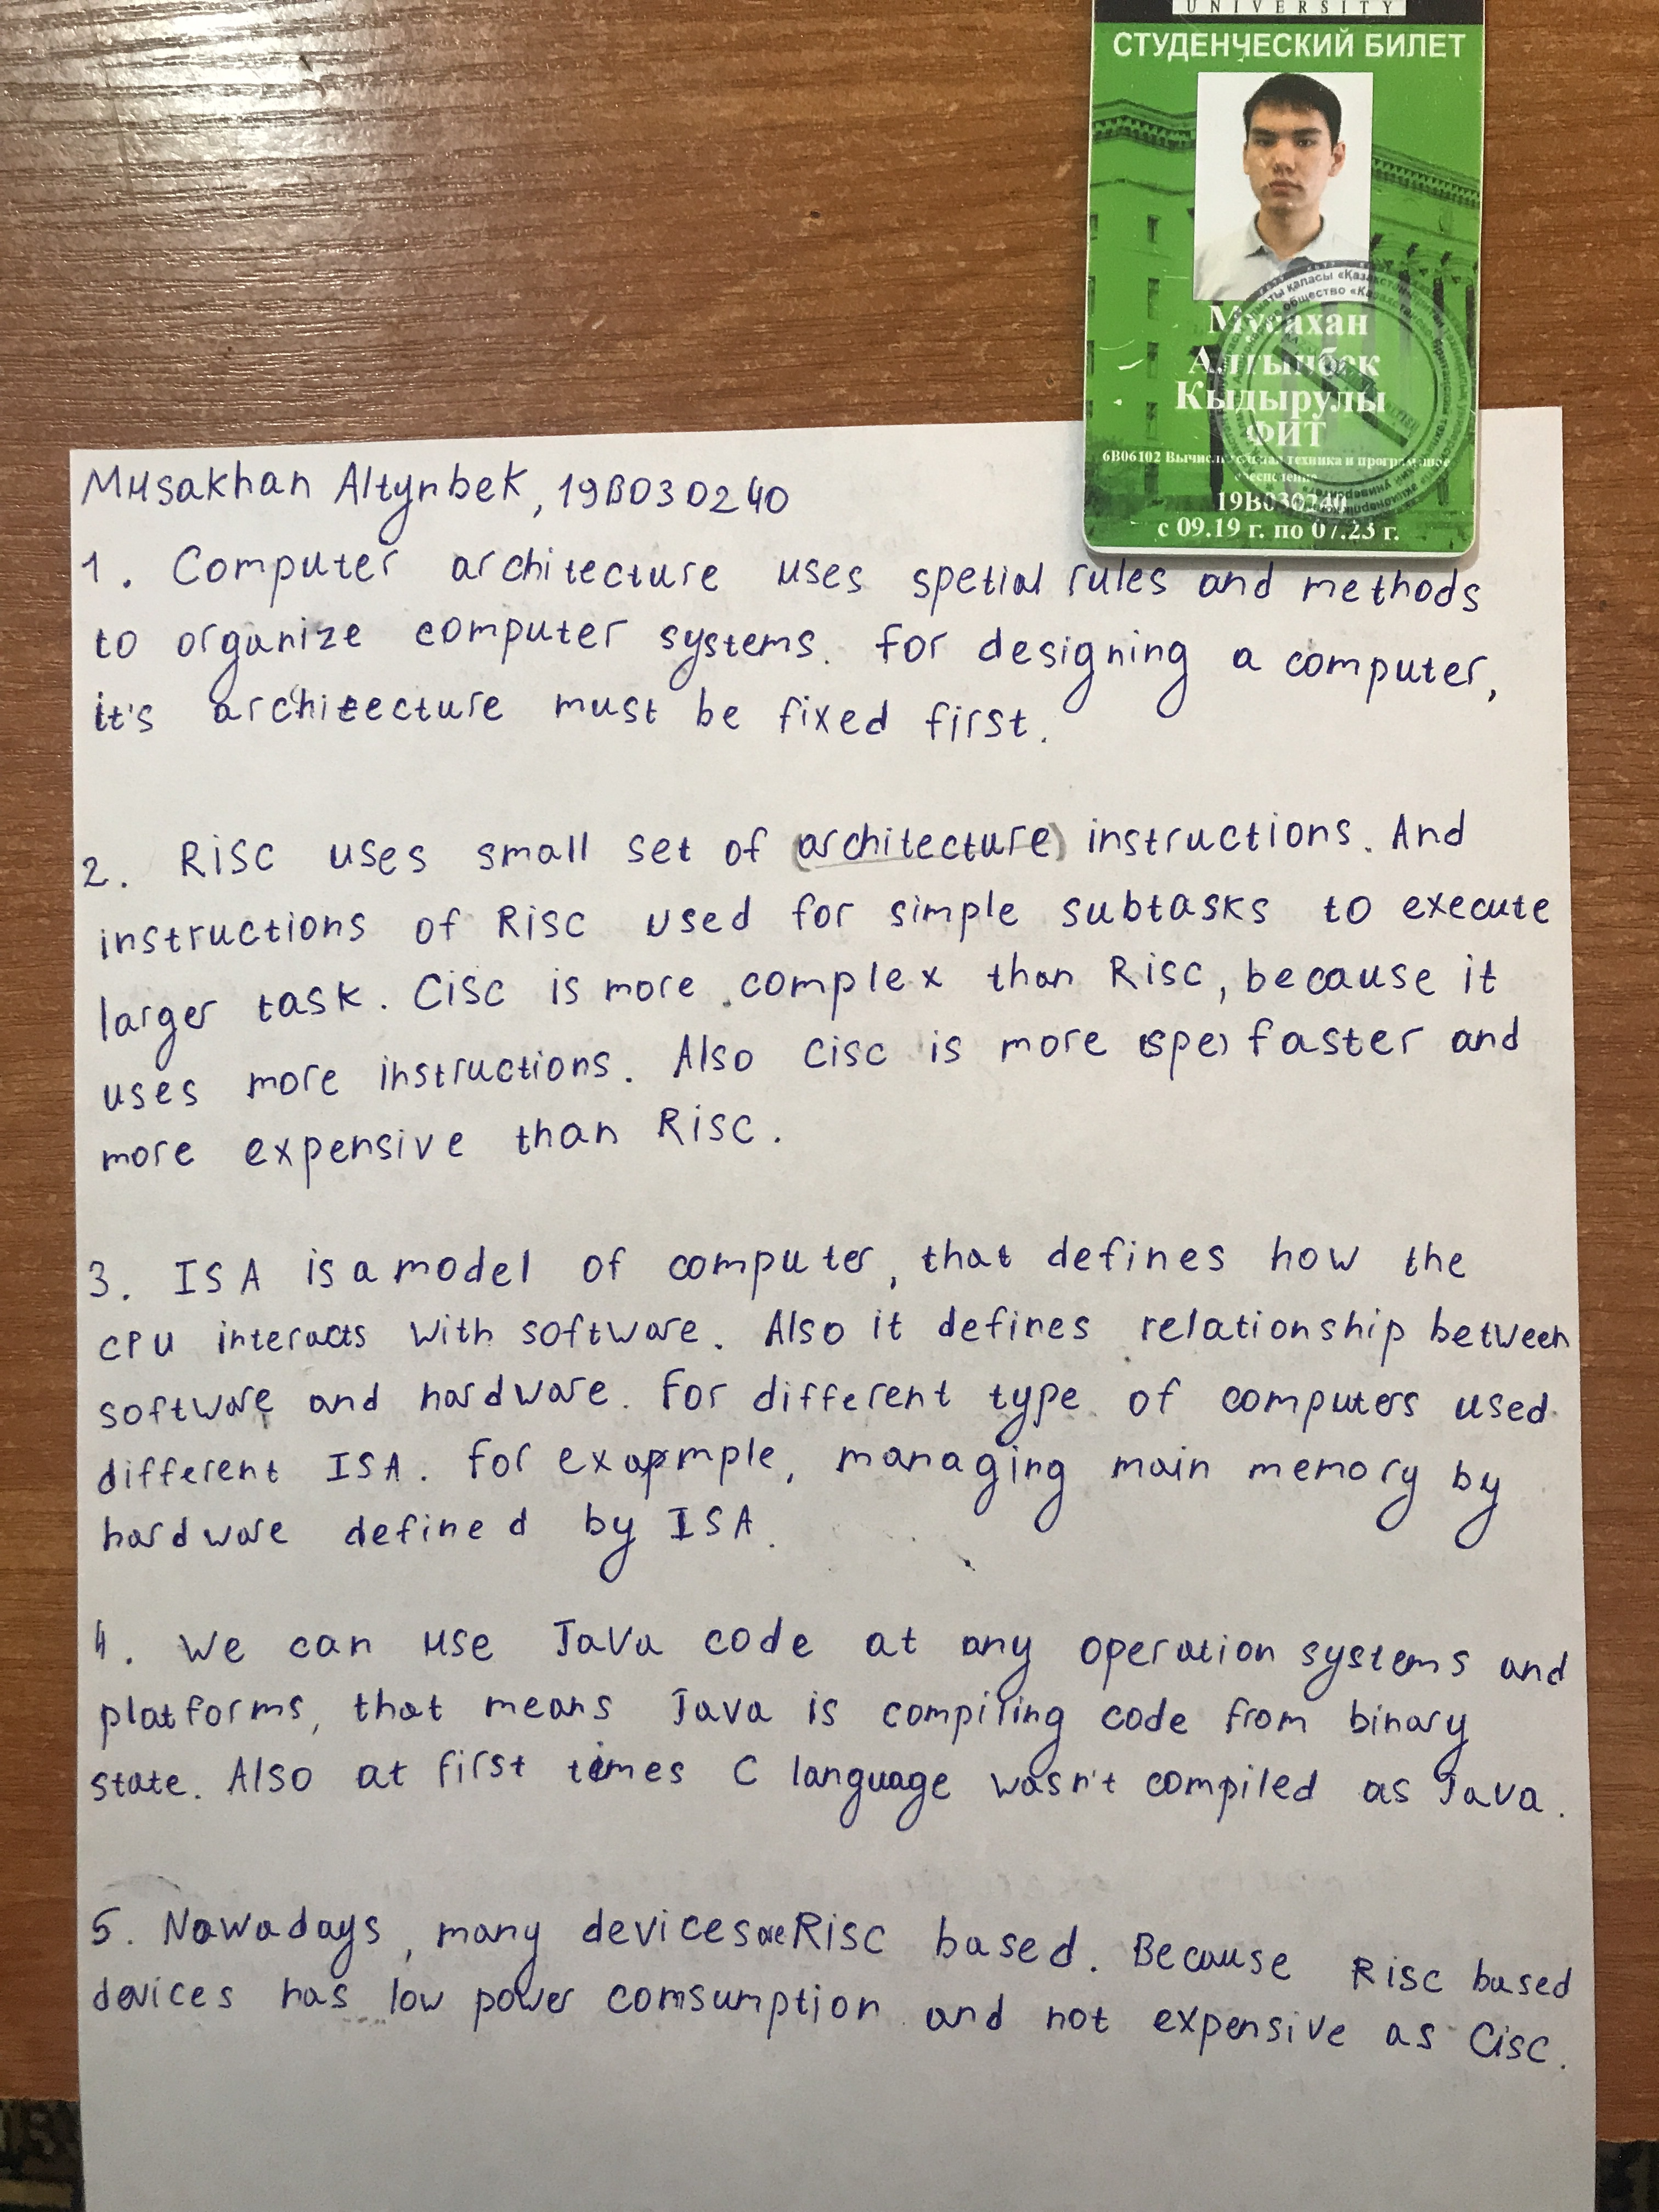 UNIVERSITY
СТУДЕНЧЕСКИЙ БИЛЕТ
Мусахан
Алтынбек
Кыдырулы
ФИТ
6B06102 Вычислительная техника и программное
обеспечение
19B030240
с 09.19 г. по 07.23 г.
Musakhan Altynbek, 19B030240
1. Computer architecture uses spetial rules and methods
to organize computer systems. for designing a computer,
it's architecture must be fixed first.
2. Risc uses small set of (architecture) instructions. And
instructions of Risc used for simple subtasks to execute
larger task. Cisc is more complex than Risc, because it
uses more instructions. Also Cisc is more (spe) faster and
more expensive than Risc.
3. ISA is a model of computer, that defines how the
CPU interacts with software. Also it defines relationship between
software and hardware. For different type of computers used
different ISA. for example, managing main memory by
hardware defined by ISA.
4. We can use Java code at any operation systems and
platforms, that means Java is compiling code from binary
state. Also at first times C language wasn't compiled as Java.
5. Nowadays, many devices are Risc based. Because Risc based
devices has low power comsumption and not expensive as Cisc.